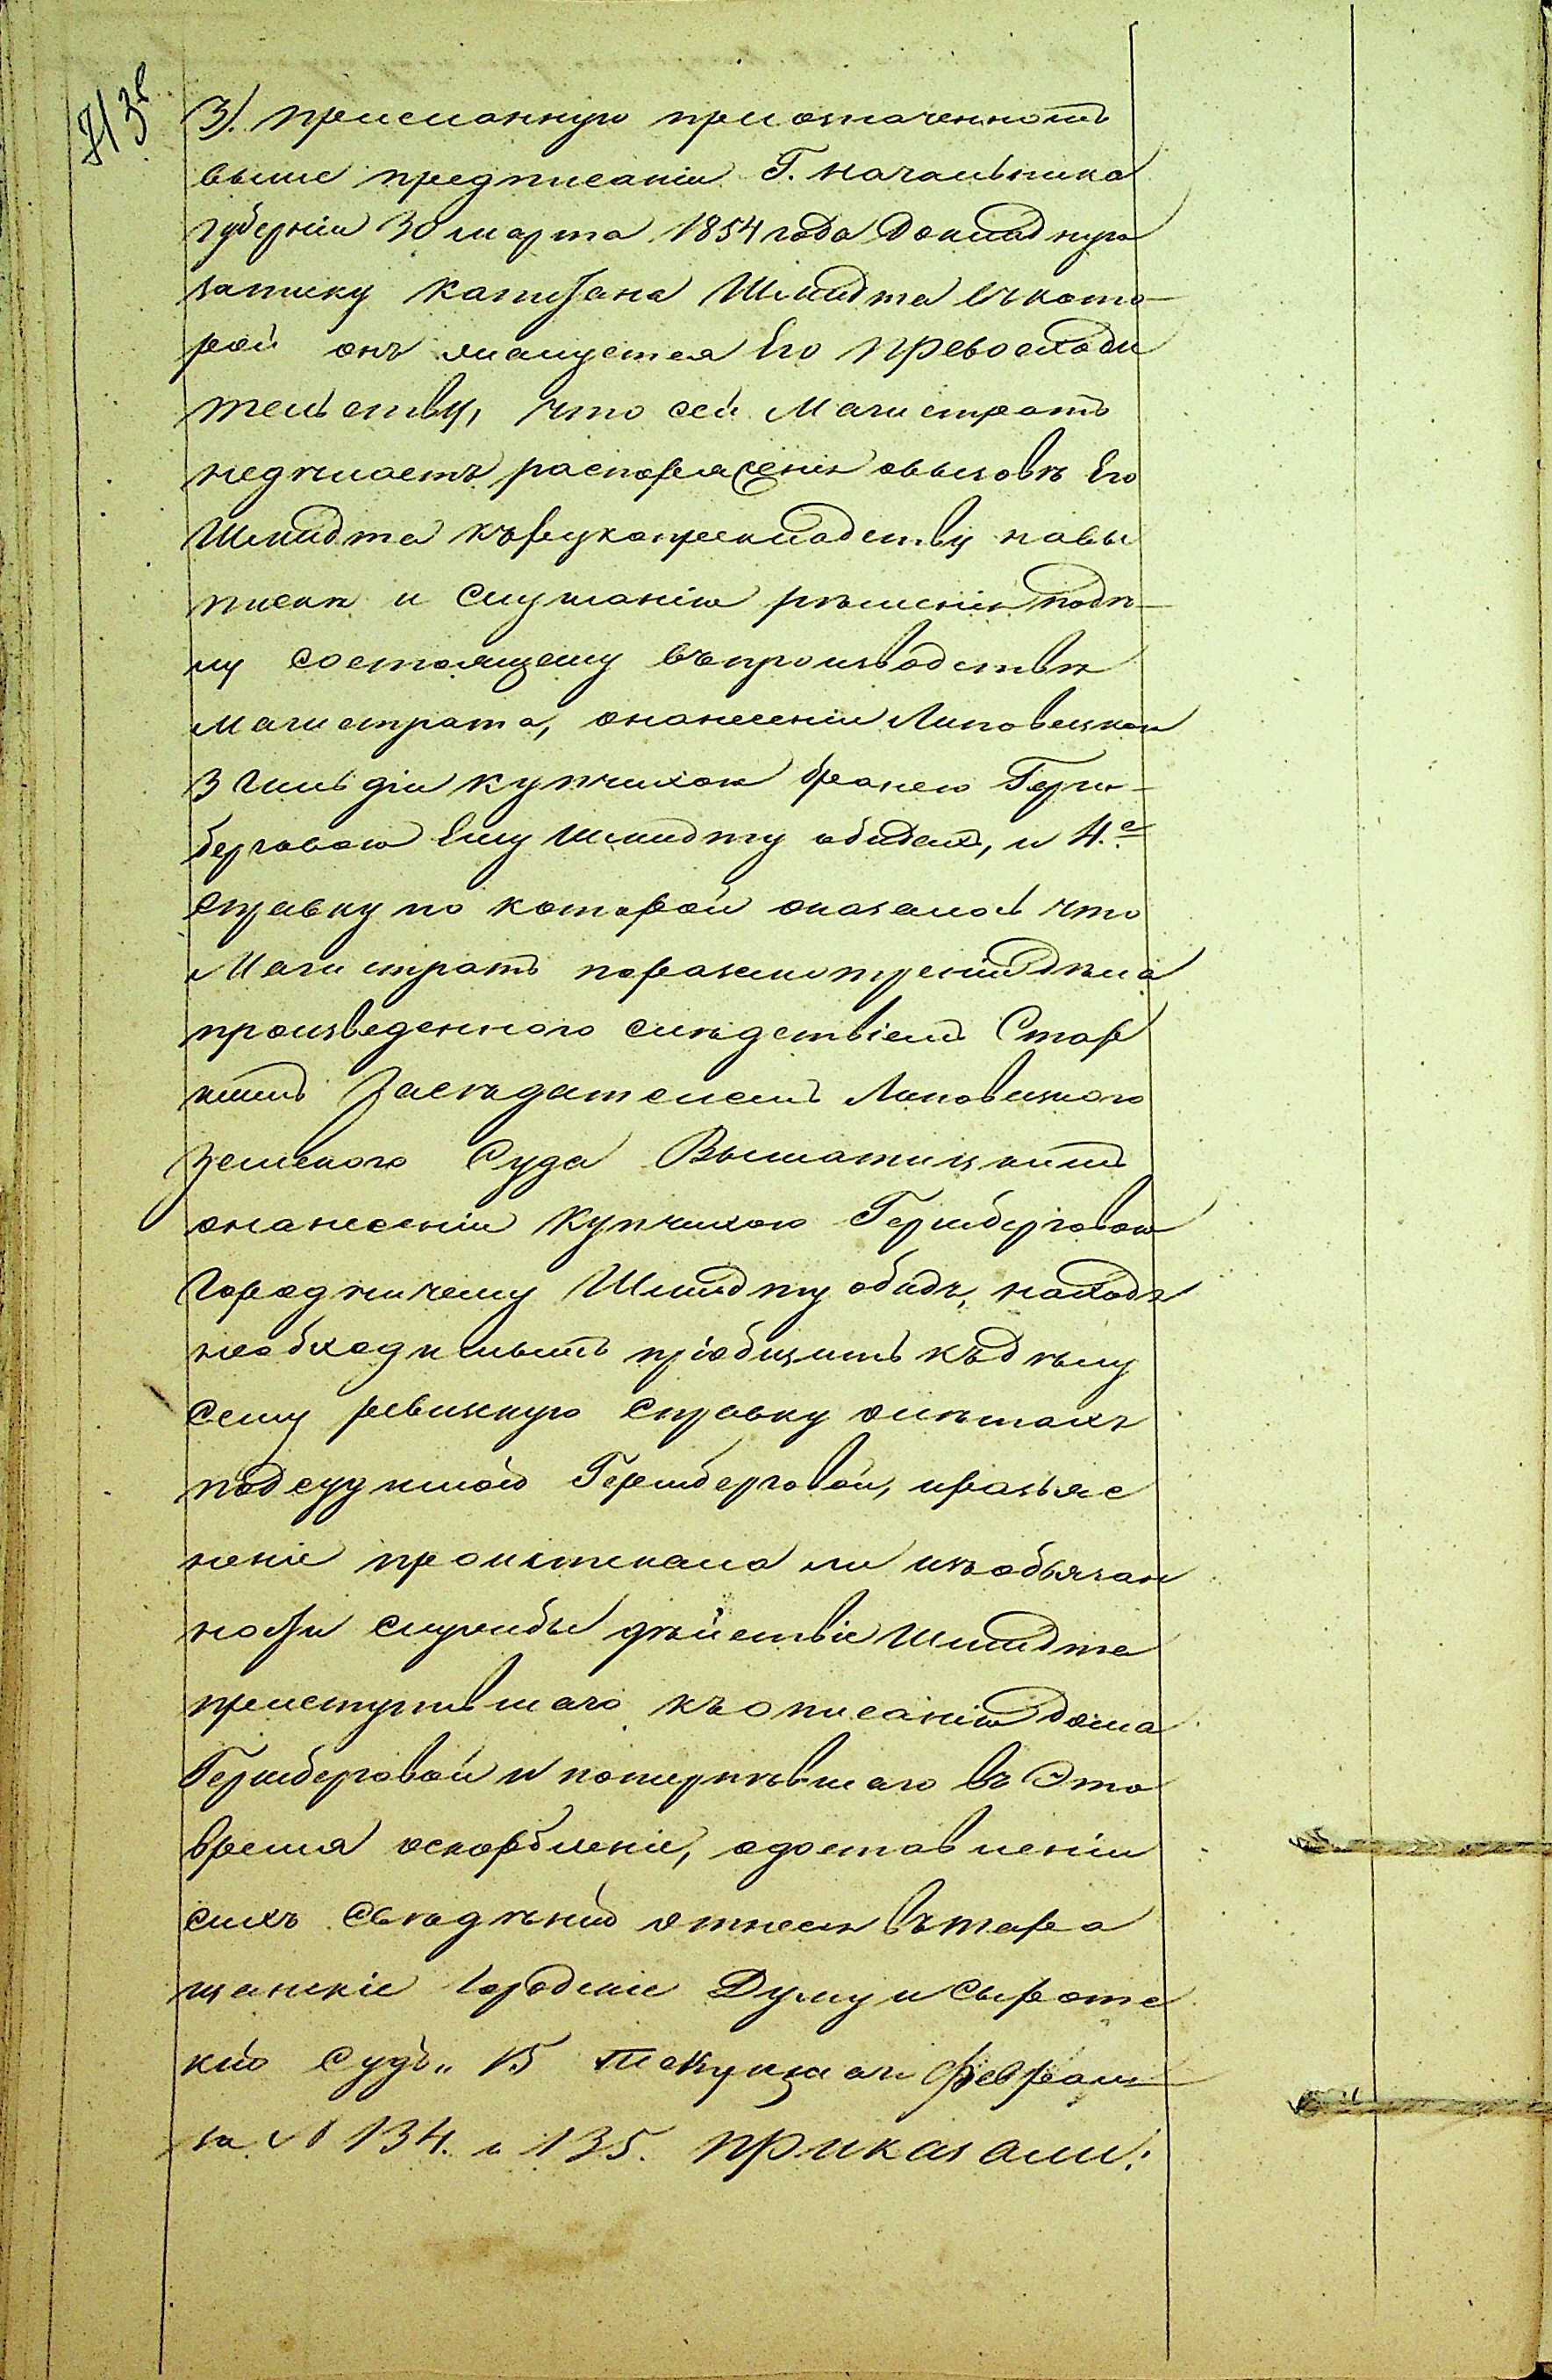 3). присланную приозначенномъ
выше предписаніи Г. Начальника
Губерніи 30 марта 1854 года докладную
записку Капитана Шмидта въ кото-
рой онъ жалуется Его Превосходи
тельству, что сей Магистратъ
недѣлаетъ распоряженія овызовѣ Его
Шмидта къ рукоприкладству навы
пискѣ и слушанію рѣшенія подѣ-
лу состоящему въ производствѣ
Магистрата, онанесеніи Липовецкою
3 Гильдіи купчихою Герш-
берговою Ему Шмидту обидѣ, и 4.е
справку по которой оказалось что
Магистратъ поразсмотреніи дѣла
произведенного слѣдствіемъ Стар
шимъ Засѣдателемъ Липовецкого
Земского Суда
онанесеніи Купчихою Гершберговою
Городничему Шмидту обидъ, находя
необходимымъ пріобщить къ дѣлу
сему ревизкую справку олѣтахъ
подсудимой Гершберговой, иразъяс
неніе проистекало ли изъ обязан
ности службы дѣйствіе Шмидта
приступившаго къ описанію дома
Гершберговой и потерпѣвшаго въ Это
время оскорбленіе, одоставленіи
сихъ свѣдѣній отнесся въ Тара
щанскіе Городскіе Думу и Сыротс
кій Судъ„ 15 текущаго Февраля
за № 134. и 135. Приказали: